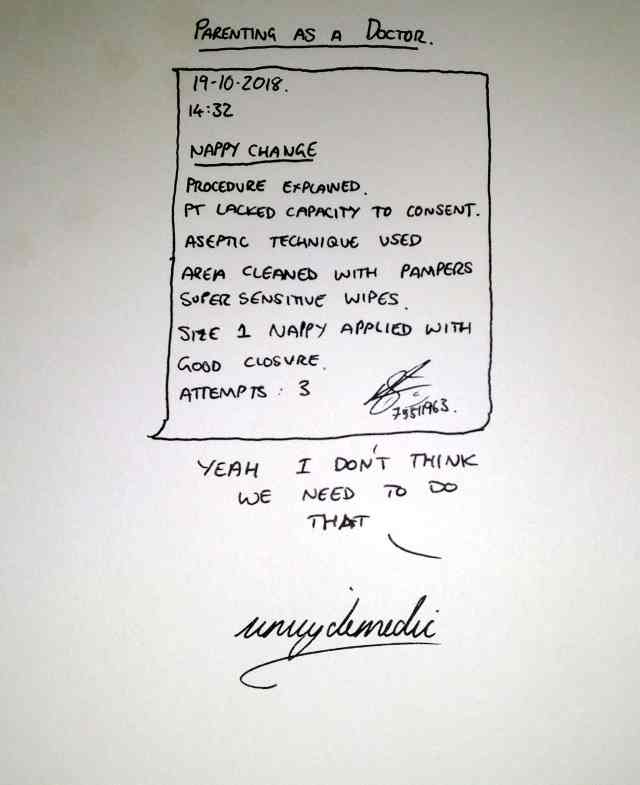 PARENTING AS A DOCTOR.
19-10-2018.
14:32
NAPPY CHANGE
PROCEDURE EXPLAINED.
PT LACKED CAPACITY TO CONSENT.
ASEPTIC TECHNIQUE USED
AREA CLEANED WITH PAMPERS
SUPER SENSITIVE WIPES.
SIZE 1 NAPPY APPLIED WITH
GOOD CLOSURE.
ATTEMPTS : 3
YEAH I DON'T THINK
WE NEED TO DO
THAT